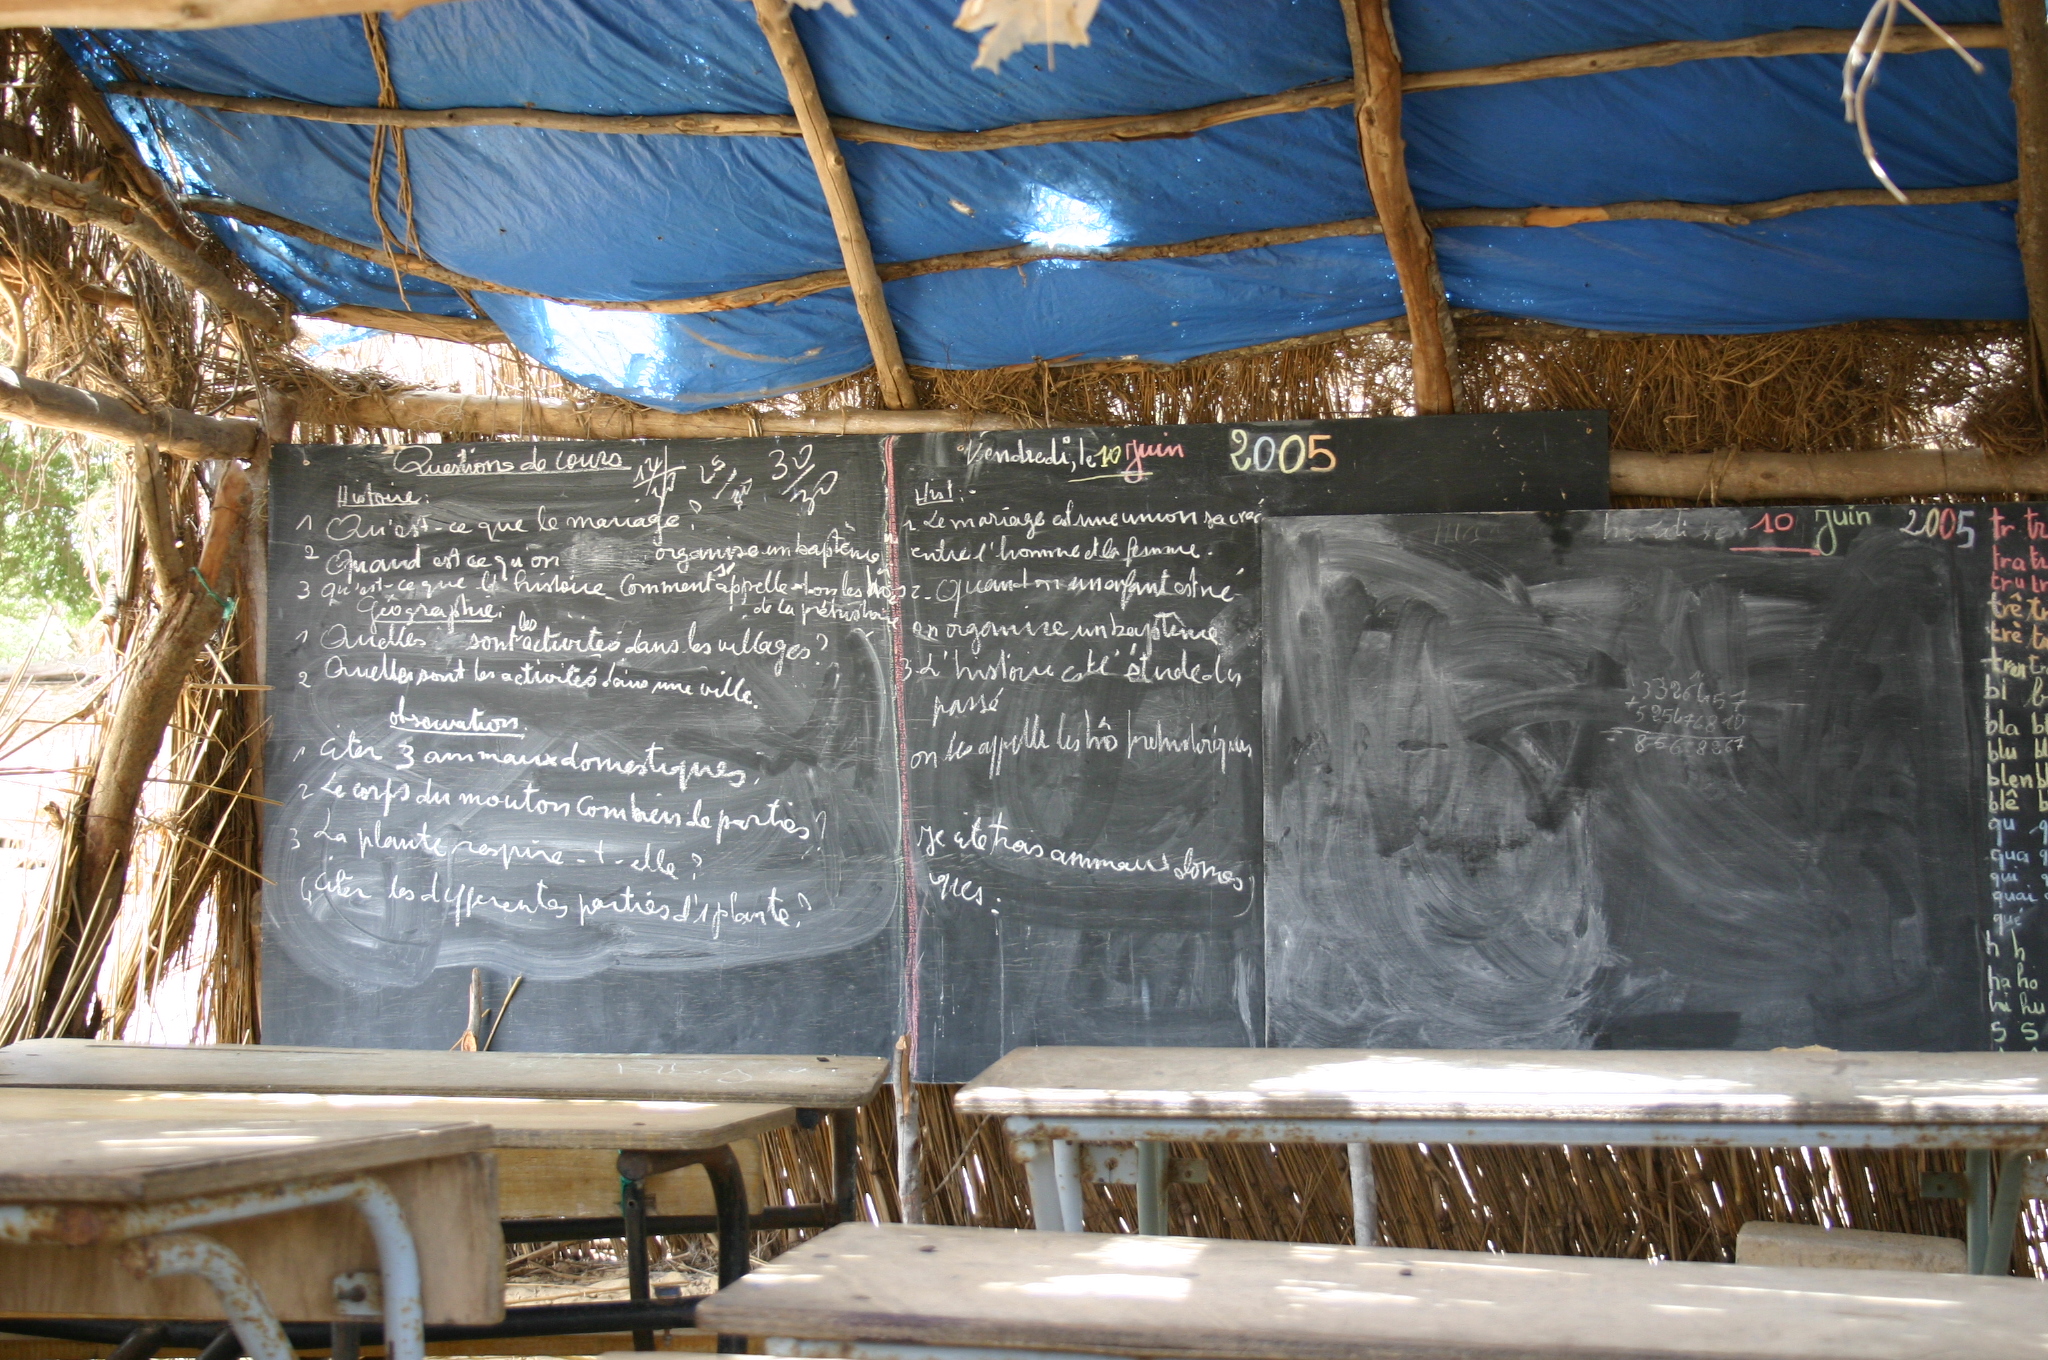 Questions de cours
Histoire:
1 Qu'est-ce que le mariage?
2 Quand est ce qu'on organise un baptême
3 qu'est-ce que l' histoire Comment s'appelle-tons les hô
de la préhistoire
Géographie:
1 Quelles sont les activités dans les villages?
2 Quelles sont les activités dans une ville.
observation
1 Citer 3 animaux domestiques.
2 Le corps du mouton Combien de parties?
3 La plante respire-t-elle?
4 Citer les différentes parties d'1 plante?
Vendredi, le 10 Juin 2005
Hist:
1. Le mariage est une union sacrée
entre l'homme et la femme.
2. Quand on un enfant est né
on organise un baptême
3. L'histoire c'est l'étude du
passé
on les appelle les hô préhistoriques
Je cite trois animaux domes
ques:
10 Juin 2005
tr tr
tra
tru
trê
trè
bi
bla
blu
blen
blê
qu
qua
qui
quai
qué
h h
ha ho
hi hu
s s